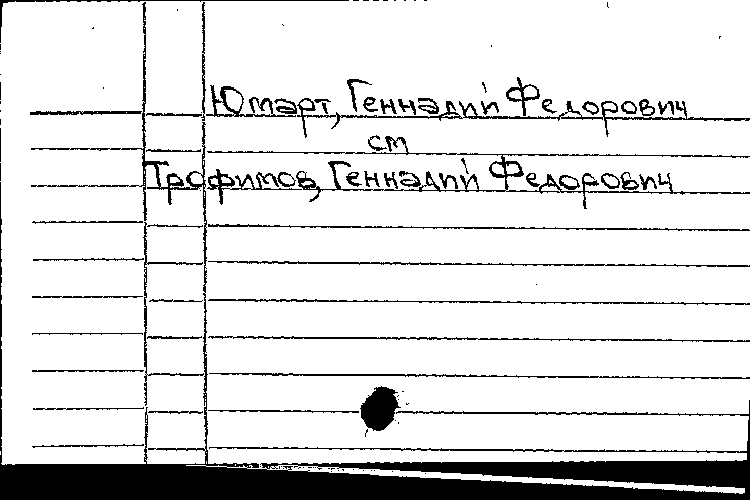 Юмарт, Геннадий Федорович
см
Трофимов, Геннадий Федорович